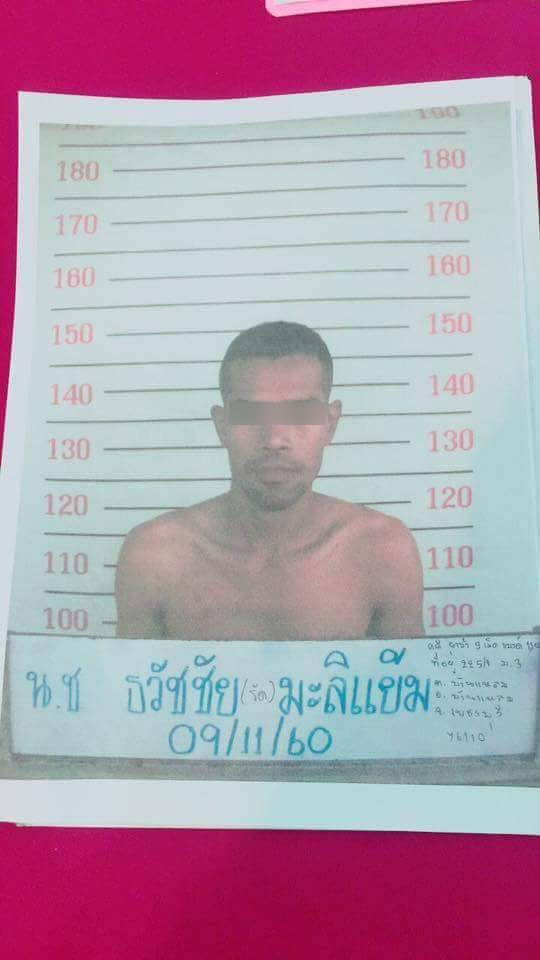 190
180 180
170 170
160 160
150 150
140 140
130 130
120 120
110 110
100 100
น.ช ธวัชชัย (รัด) มะลิแย้ม
09/11/60
ที่อยู่ 225/1 ม.3
ต. บ้านแหลม
อ. บ้านแหลม
จ. เพชรบุรี
76110